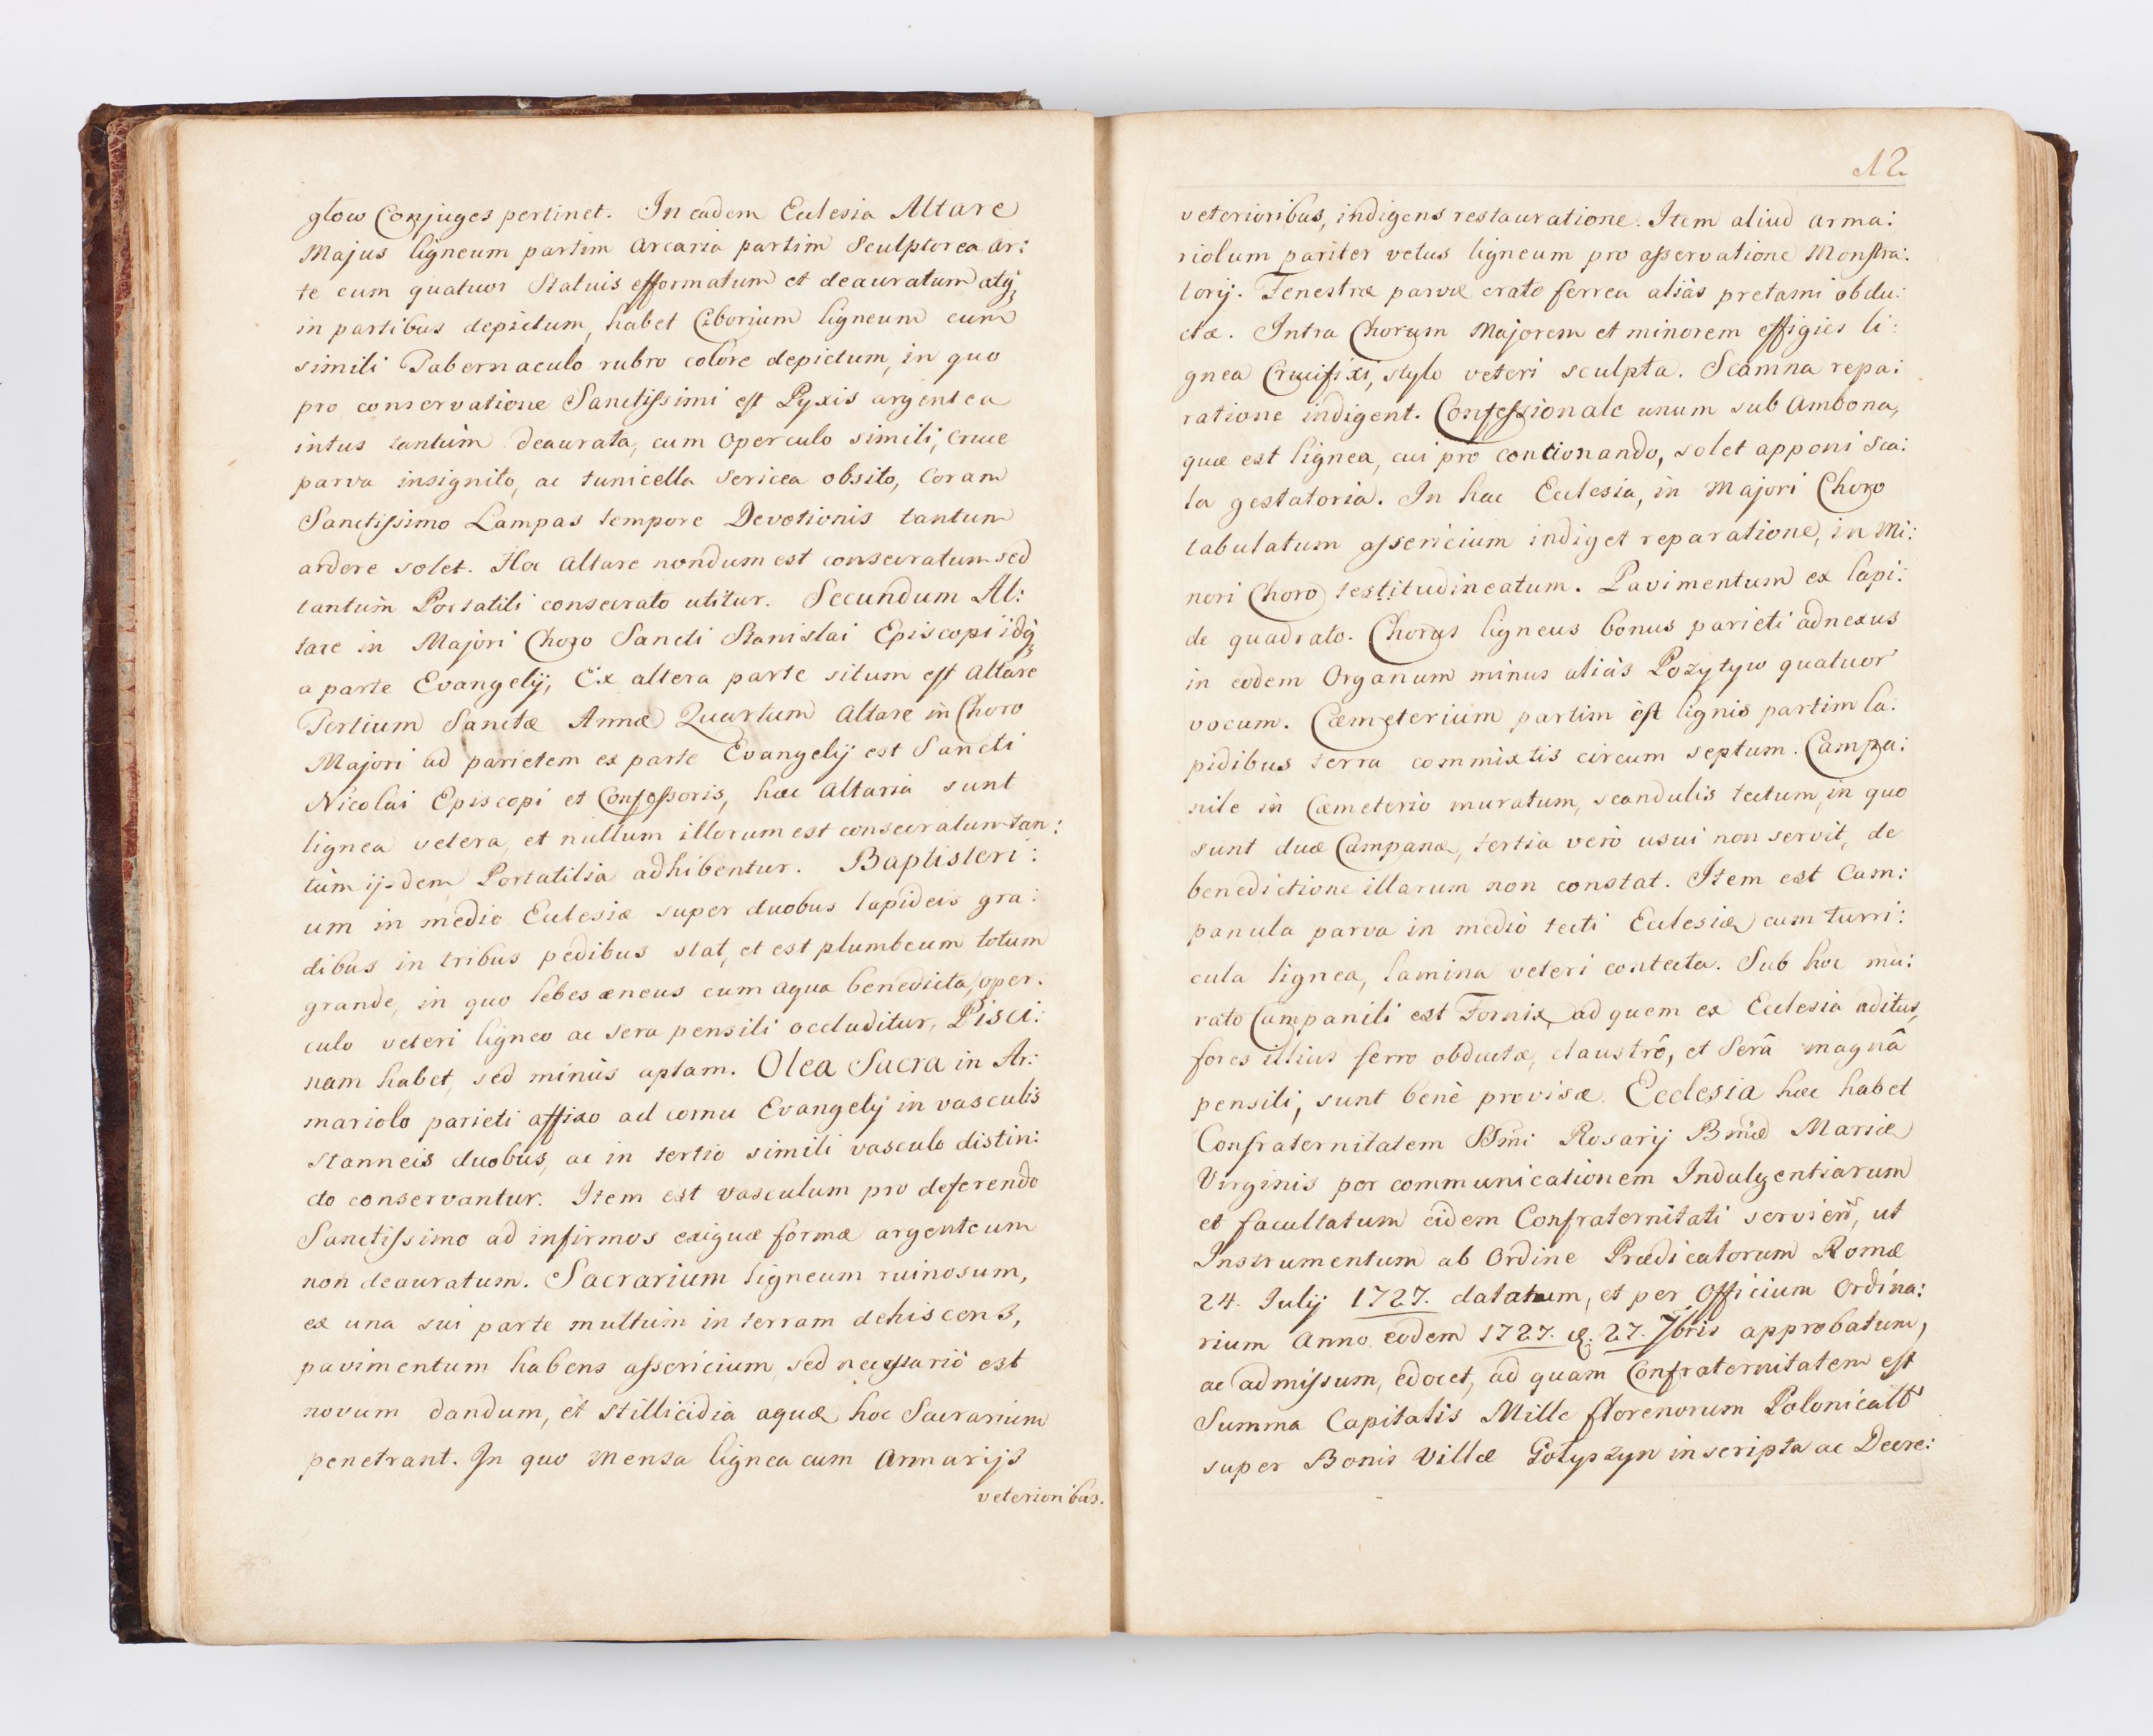 glow Conjuges pertinet. In eadem Eccleśia Altare
Majus ligneum partim Arcaria partim Sculptorea Ar:
te cum quatuor Statuis efformatum et deauratum atq;
in partibus depictum, habet Ciborium ligneum cum
simili Tabernaculo rubro colore depictum, in quo
pro conservatione Sanctissimi est Pyxis argentea
intus tantùm deaurata, cum Operculo simili, Cruce
parva insignito, ac tunicella Sericea obsito, Coram
Sanctissimo Lampas tempore Devotionis tantum
ardere solet. Hoc Altare nondum est consecratum sed
tantùm Portatili consecrato utitur. Secundum Al:
tare in Majori Choro Sancti Stanislai Episcopi idq;
a parte Evangelij, Ex altera parte situm est Altare
Tertium Sanctæ Annæ Quartum Altare in Choro
Majori ad parietem ex parte Evangelij est Sancti
Nicolai Episcopi et Confessoris, hæc Altaria sunt
lignea vetera, et nullum illorum est consecratum tan:
tùm ijsdem Portatilia adhibentur. Baptisteri:
um in medio Ecclesiæ super duobus lapideis gra:
dibus in tribus pedibus stat, et est plumbeum totum
grande, in quo lebes æneus cum aqua benedicta, oper:
culo veteri ligneo ac sera pensili occluditur, Pisci:
nam habet, sed minùs aptam. Olea Sacra in Ar:
mariolo parieti affixo ad cornu Evangelij in vasculis
stanneis duobus, ac in tertio simili vasculo distin:
cto conservantur. Item est vasculum pro deferendo
Sanctissimo ad infirmos exiguæ formæ argenteum
non deauratum. Sacrarium ligneum ruinosum,
ex una sui parte multùm in terram dehiscens,
pavimentum habens assericium, sed necessariò est
novum dandum, et stillicidia aquæ hoc Sacrarium
penetrant. In quo Mensa lignea cum Armarijs
veterioribus.
12
veterioribus, indigens restauratione. Item aliud arma:
riolum pariter vetus ligneum pro asservatione Monstra:
torij. Fenestræ parvæ crate ferrea aliàs pretami obdu:
ctæ. Intra Chorum Majorem et minorem effigies li:
gnea Crucifixi, stylo veteri sculpta. Scamna repa:
ratione indigent. Confessionale unum sub Ambona,
quæ est lignea, cui pro concionando, solet apponi sca:
la gestatoria. In hac Ecclesia, in Majori Choro
tabulatum assericium indiget reparatione, in Mi:
nori Choro testitudineatum. Pavimentum ex lapi:
de quadrato. Chorus ligneus bonus parieti adnexus
in eodem Organum minus aliàs Pozytyw quatuor
vocum. Cæmeterium partim est lignis partim la:
pidibus terra commixtis circum septum. Campa:
nile in Cæmeterio muratum, scandulis tectum, in quo
sunt duæ Campanæ, tertia verò usui non servit, de
benedictione illarum non constat. Item est Cam:
panula parva in medio tecti Ecclesiæ cum turri:
cula lignea, lamina veteri contecta. Sub hoc mu:
rato Campanili est Fornix, ad quem ex Ecclesia aditus,
fores illius ferro obductæ, claustrô, et Serâ magnâ
pensili, sunt benè provisæ. Ecclesia hæc habet
Confraternitatem SSmi Rosarij Bmæ Mariæ
Virginis per communicationem Indulgentiarum
et facultatum eidem Confraternitati servien, ut
Instrumentum ab Ordine Prædicatorum Romæ
24. Julij 1727. datatum, et per Officium Ordina:
rium Anno eodem 1727. d. 27. 7bris approbatum,
ac admissum, edocet, ad quam Confraternitatem est
Summa Capitalis Mille florenorum Polonicalt
super Bonis Villæ Gołyszyn inscripta ac Decre: